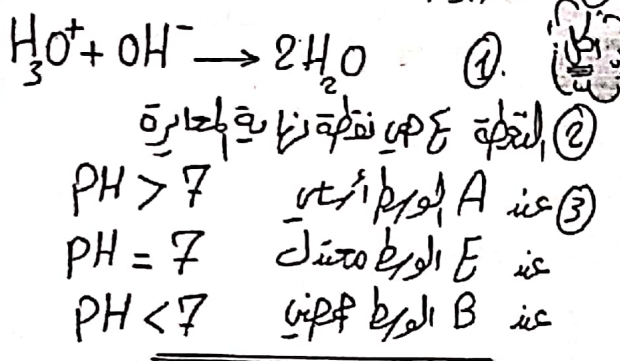 H₃O⁺ + OH⁻ → 2H₂O ①
② النقطة E هي نقطة نهاية المعايرة
③ عند A الوسط أساسي PH > 7
عند E الوسط معتدل PH = 7
عند B الوسط حمضي PH < 7